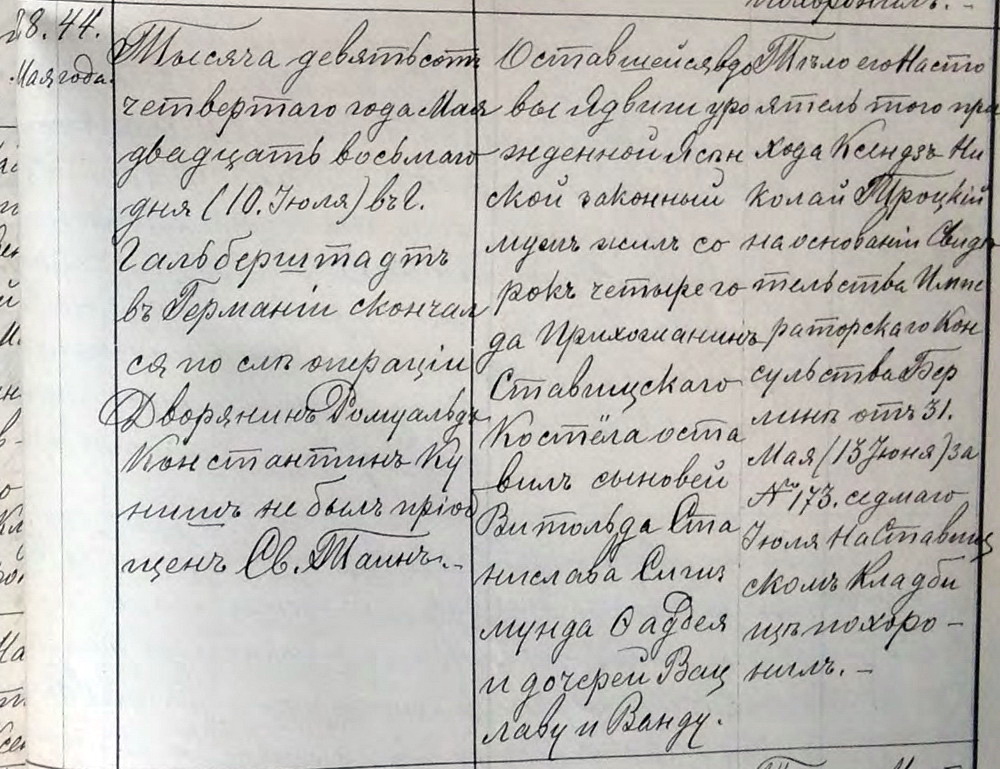 похоронилъ. -
28.
44.
Мая
года.
Тысяча девятьсотъ
четвертаго года Мая
двадцать восьмаго
дня (10. Іюля) въ г.
Гальберштадтъ
въ Германіи скончал
ся по слѣ операціи
Дворянинъ Ромуальдъ
Константинъ Ку
ницъ не былъ пріоб
щенъ Св. Таинъ. -
Оставшейся вдо
вы Ядвиги уро
жденной Ясын
ской законный
мужъ жилъ со
рокъ четыре го
да Прихожанинъ
Ставищскаго
Костёла оста
вилъ сыновей
Витольда Ста
нислава Сигиз
мунда Ѳаддея
и дочерей Вац
лаву и Ванду.
Тѣло его Насто
ятель того при
хода Ксендзъ Ни
колай Троцкій
на основаніи Свидѣ
тельства Импе
раторскаго Кон
сульства Бер
линѣ отъ 31.
Мая (13 Іюня) за
№ 173. седмаго
Іюля На Ставищ
скомъ Кладби
щѣ похоро -
нилъ. -